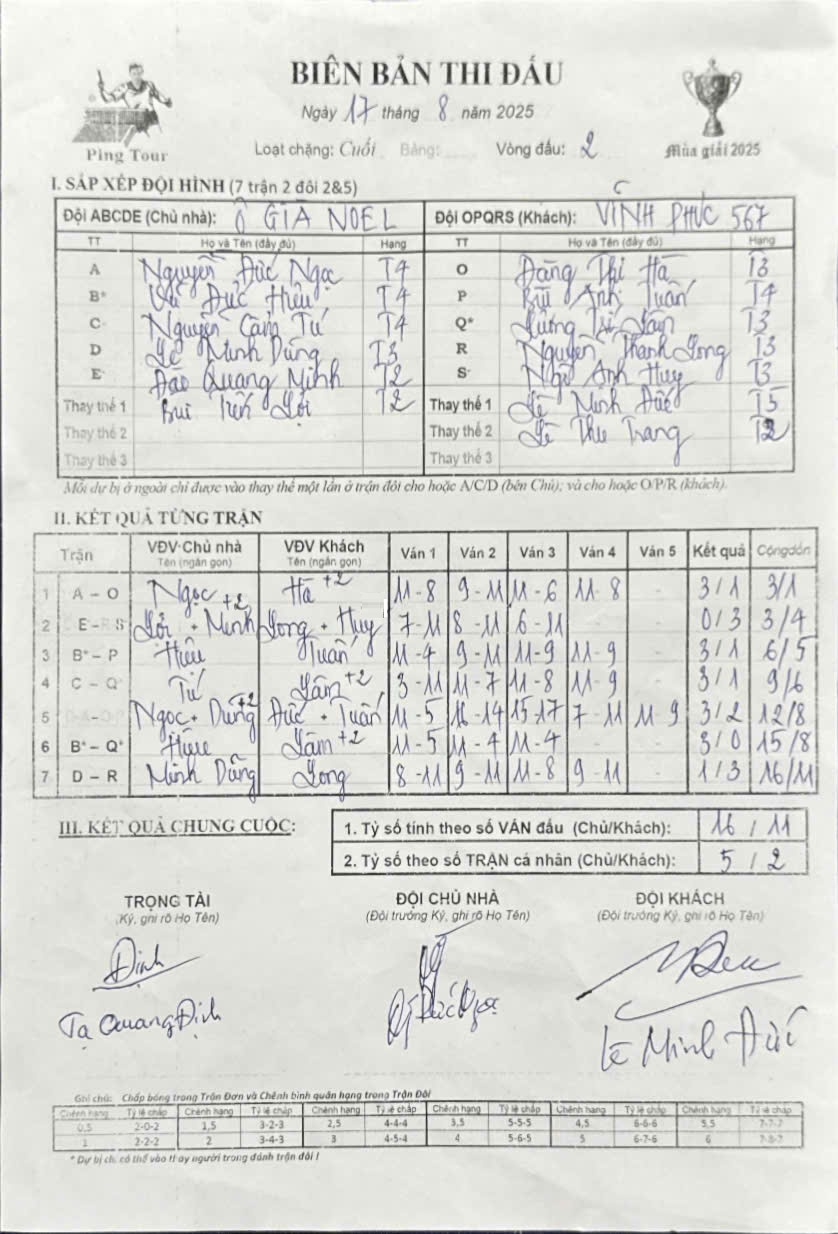 BIÊN BẢN THI ĐẤU
Ngày 17 tháng 8 năm 2025
Ping Tour
Loạt chặng: Cuối Bảng: Vòng đấu: 2
Mùa giải 2025
I. SẮP XẾP ĐỘI HÌNH (7 trận 2 đôi 2&5)
Đội ABCDE (Chủ nhà): Ô GIA NOEL Đội OPQRS (Khách): VĨNH PHÚC 567
TT Họ và Tên (đầy đủ) Hạng TT Họ và Tên (đầy đủ) Hạng
A Nguyễn Đức Ngọc T4 O Đặng Thị Hà T3
B* Vũ Đức Hiệu T4 P Bùi Anh Tuấn T4
C Nguyễn Cẩm Tú T4 Q* Lâm T3
D Lê Minh Dũng T3 R Nguyễn Thanh Long T3
E Đào Quang Minh T2 S Ngô Anh Huy T3
Thay thế 1 Bùi Tiến Lợi T2 Thay thế 1 Lê Minh Đức T5
Thay thế 2 Thay thế 2 Lê Thu Trang T2
Thay thế 3 Thay thế 3
Mỗi dự bị ở ngoài chỉ được vào thay thế một lần ở trận đôi cho hoặc A/C/D (bên Chủ); và cho hoặc O/P/R (khách).
II. KẾT QUẢ TỪNG TRẬN
Trận VĐV Chủ nhà VĐV Khách Ván 1 Ván 2 Ván 3 Ván 4 Ván 5 Kết quả Cộng dồn
Tên (ngắn gọn) Tên (ngắn gọn)
1 A – O Ngọc Hà +2 11-8 9-11 11-6 11-8 3/1 3/1
2 E – S Lợi + Minh +2 Long + Huy 7-11 8-11 6-11 0/3 3/4
3 B* – P Hiệu Tuấn 11-4 9-11 11-9 11-9 - 3/1 6/5
4 C – Q Tú Lâm +2 3-11 11-7 11-8 11-9 3/1 9/6
5 Ngọc + Dũng +2 Đức + Tuấn 11-5 16-14 15-17 7-11 11-9 3/2 12/8
6 B* – Q* Hiệu Lâm +2 11-5 11-4 11-4 - - 3/0 15/8
7 D – R Minh Dũng Long 8-11 9-11 11-8 9-11 - 1/3 16/11
III. KẾT QUẢ CHUNG CUỘC:
1. Tỷ số tính theo số VÁN đấu (Chủ/Khách): 16 / 11
2. Tỷ số theo số TRẬN cá nhân (Chủ/Khách): 5 / 2
TRỌNG TÀI ĐỘI CHỦ NHÀ ĐỘI KHÁCH
(Ký, ghi rõ Họ Tên) (Đội trưởng Ký, ghi rõ Họ Tên) (Đội trưởng Ký, ghi rõ Họ Tên)
Định
Tạ Quang Định
Lê Minh Đức
Ghi chú: Chấp bóng trong Trận Đơn và Chênh bình quân hạng trong Trận Đôi
Chênh hạng Tỷ lệ chấp Chênh hạng Tỷ lệ chấp Chênh hạng Tỷ lệ chấp Chênh hạng Tỷ lệ chấp Chênh hạng Tỷ lệ chấp Chênh hạng Tỷ lệ chấp
0,5 2-0-2 1,5 3-2-3 2,5 4-4-4 3,5 5-5-5 4,5 6-6-6 5,5 7-7-7
1 2-2-2 2 3-4-3 3 4-5-4 4 5-6-5 5 6-7-6 6 7-8-7
* Dự bị chỉ có thể vào thay người trong đánh trận đôi !